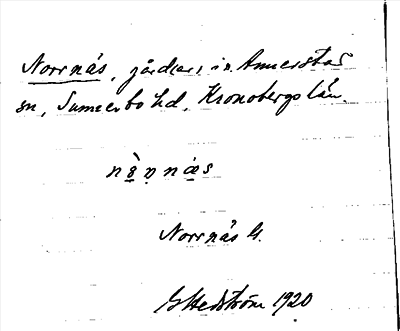 Norrnäs, gårdar, i n. Annerstad
sn, Sunnerbo hd, Kronobergs län.
Norrnäs G.
G Hedström 1920